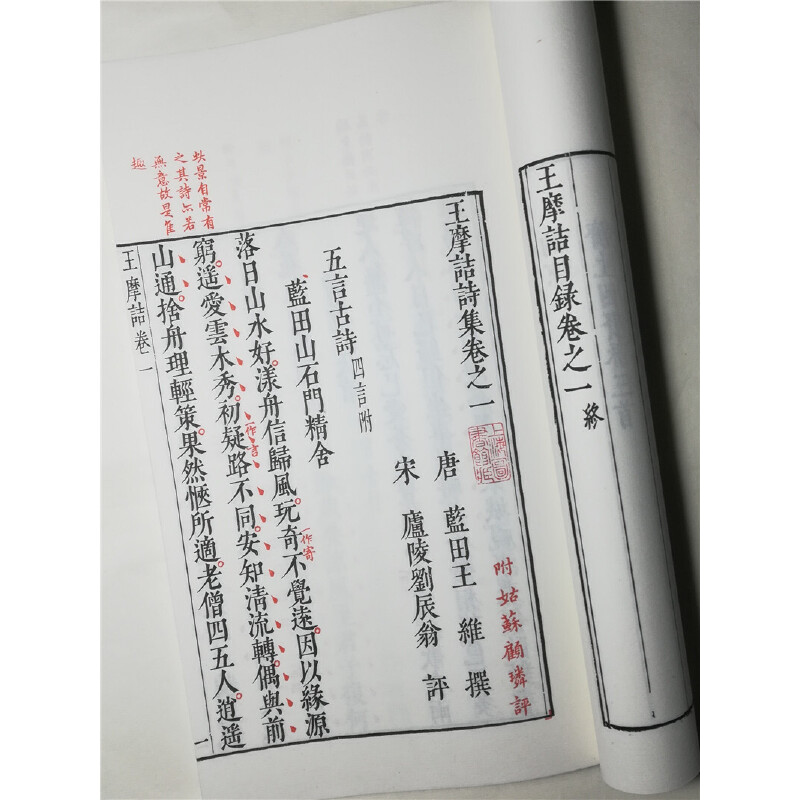 王摩詰目録卷之一 終
王摩詰詩集卷之一
上海圖
書館藏
附姑蘇顧璘評
唐 藍田王 維 撰
宋 廬陵劉辰翁 評
五言古詩 四言附
藍田山石門精舍
落日山水好。漾舟信歸風。玩奇不覺遠。因以緣源
一作寄
窮。遥愛雲木秀。初疑路不同。安知清流轉。偶與前
一作言
山通。捨舟理輕策。果然愜所適。老僧四五人。逍遥
此景自常有
之其詩亦若
無意故是佳
趣
王摩詰 卷一
一